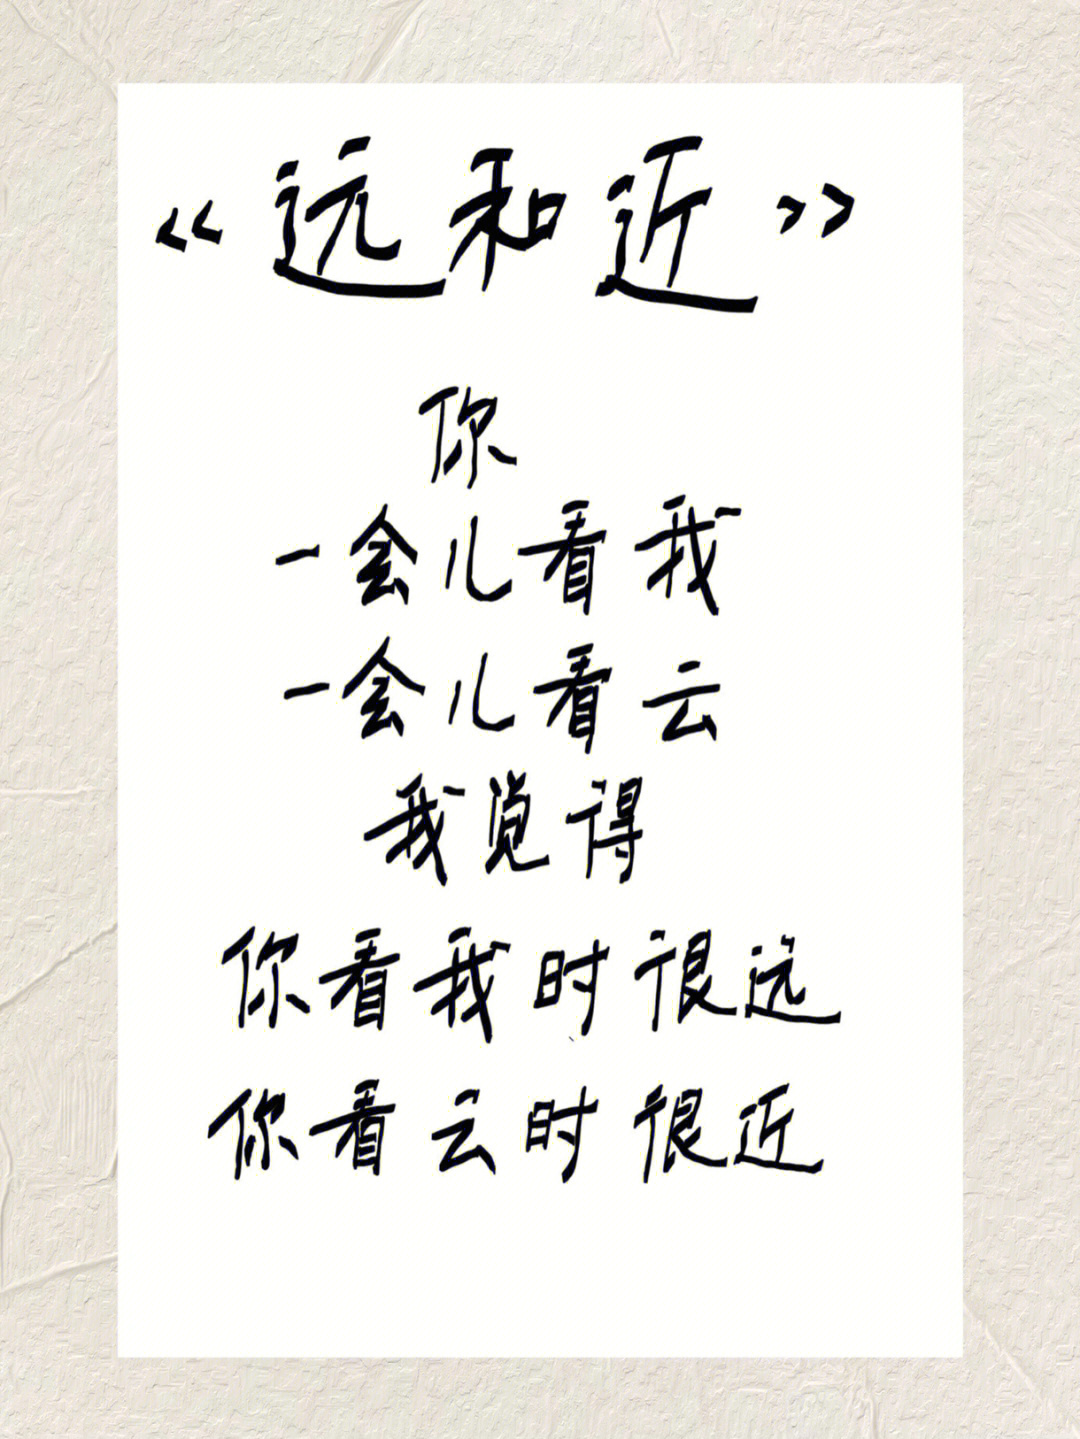 《远和近》
你
一会儿看我
一会儿看云
我觉得
你看我时很远
你看云时很近